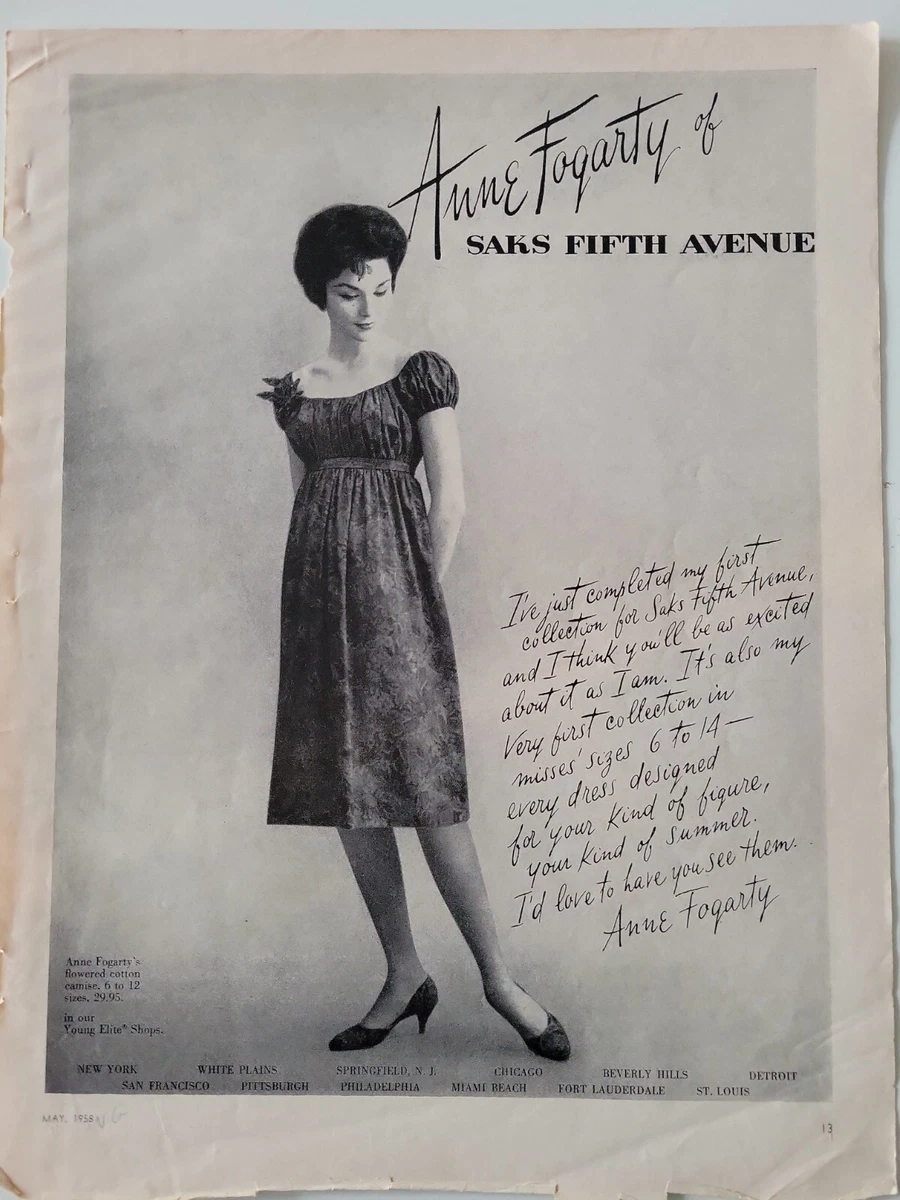 Anne Fogarty of
SAKS FIFTH AVENUE
I've just completed my first
collection for Saks Fifth Avenue,
and I think you'll be as excited
about it as I am. It's also my
very first collection in
misses' sizes 6 to 14 —
every dress designed
for your kind of figure,
your kind of summer.
I'd love to have you see them.
Anne Fogarty
Anne Fogarty's
flowered cotton
camise, 6 to 12
sizes, 29.95.
in our
Young Elite* Shops.
NEW YORK WHITE PLAINS SPRINGFIELD, N. J. CHICAGO BEVERLY HILLS DETROIT
SAN FRANCISCO PITTSBURGH PHILADELPHIA MIAMI BEACH FORT LAUDERDALE ST. LOUIS
MAY, 1958
13